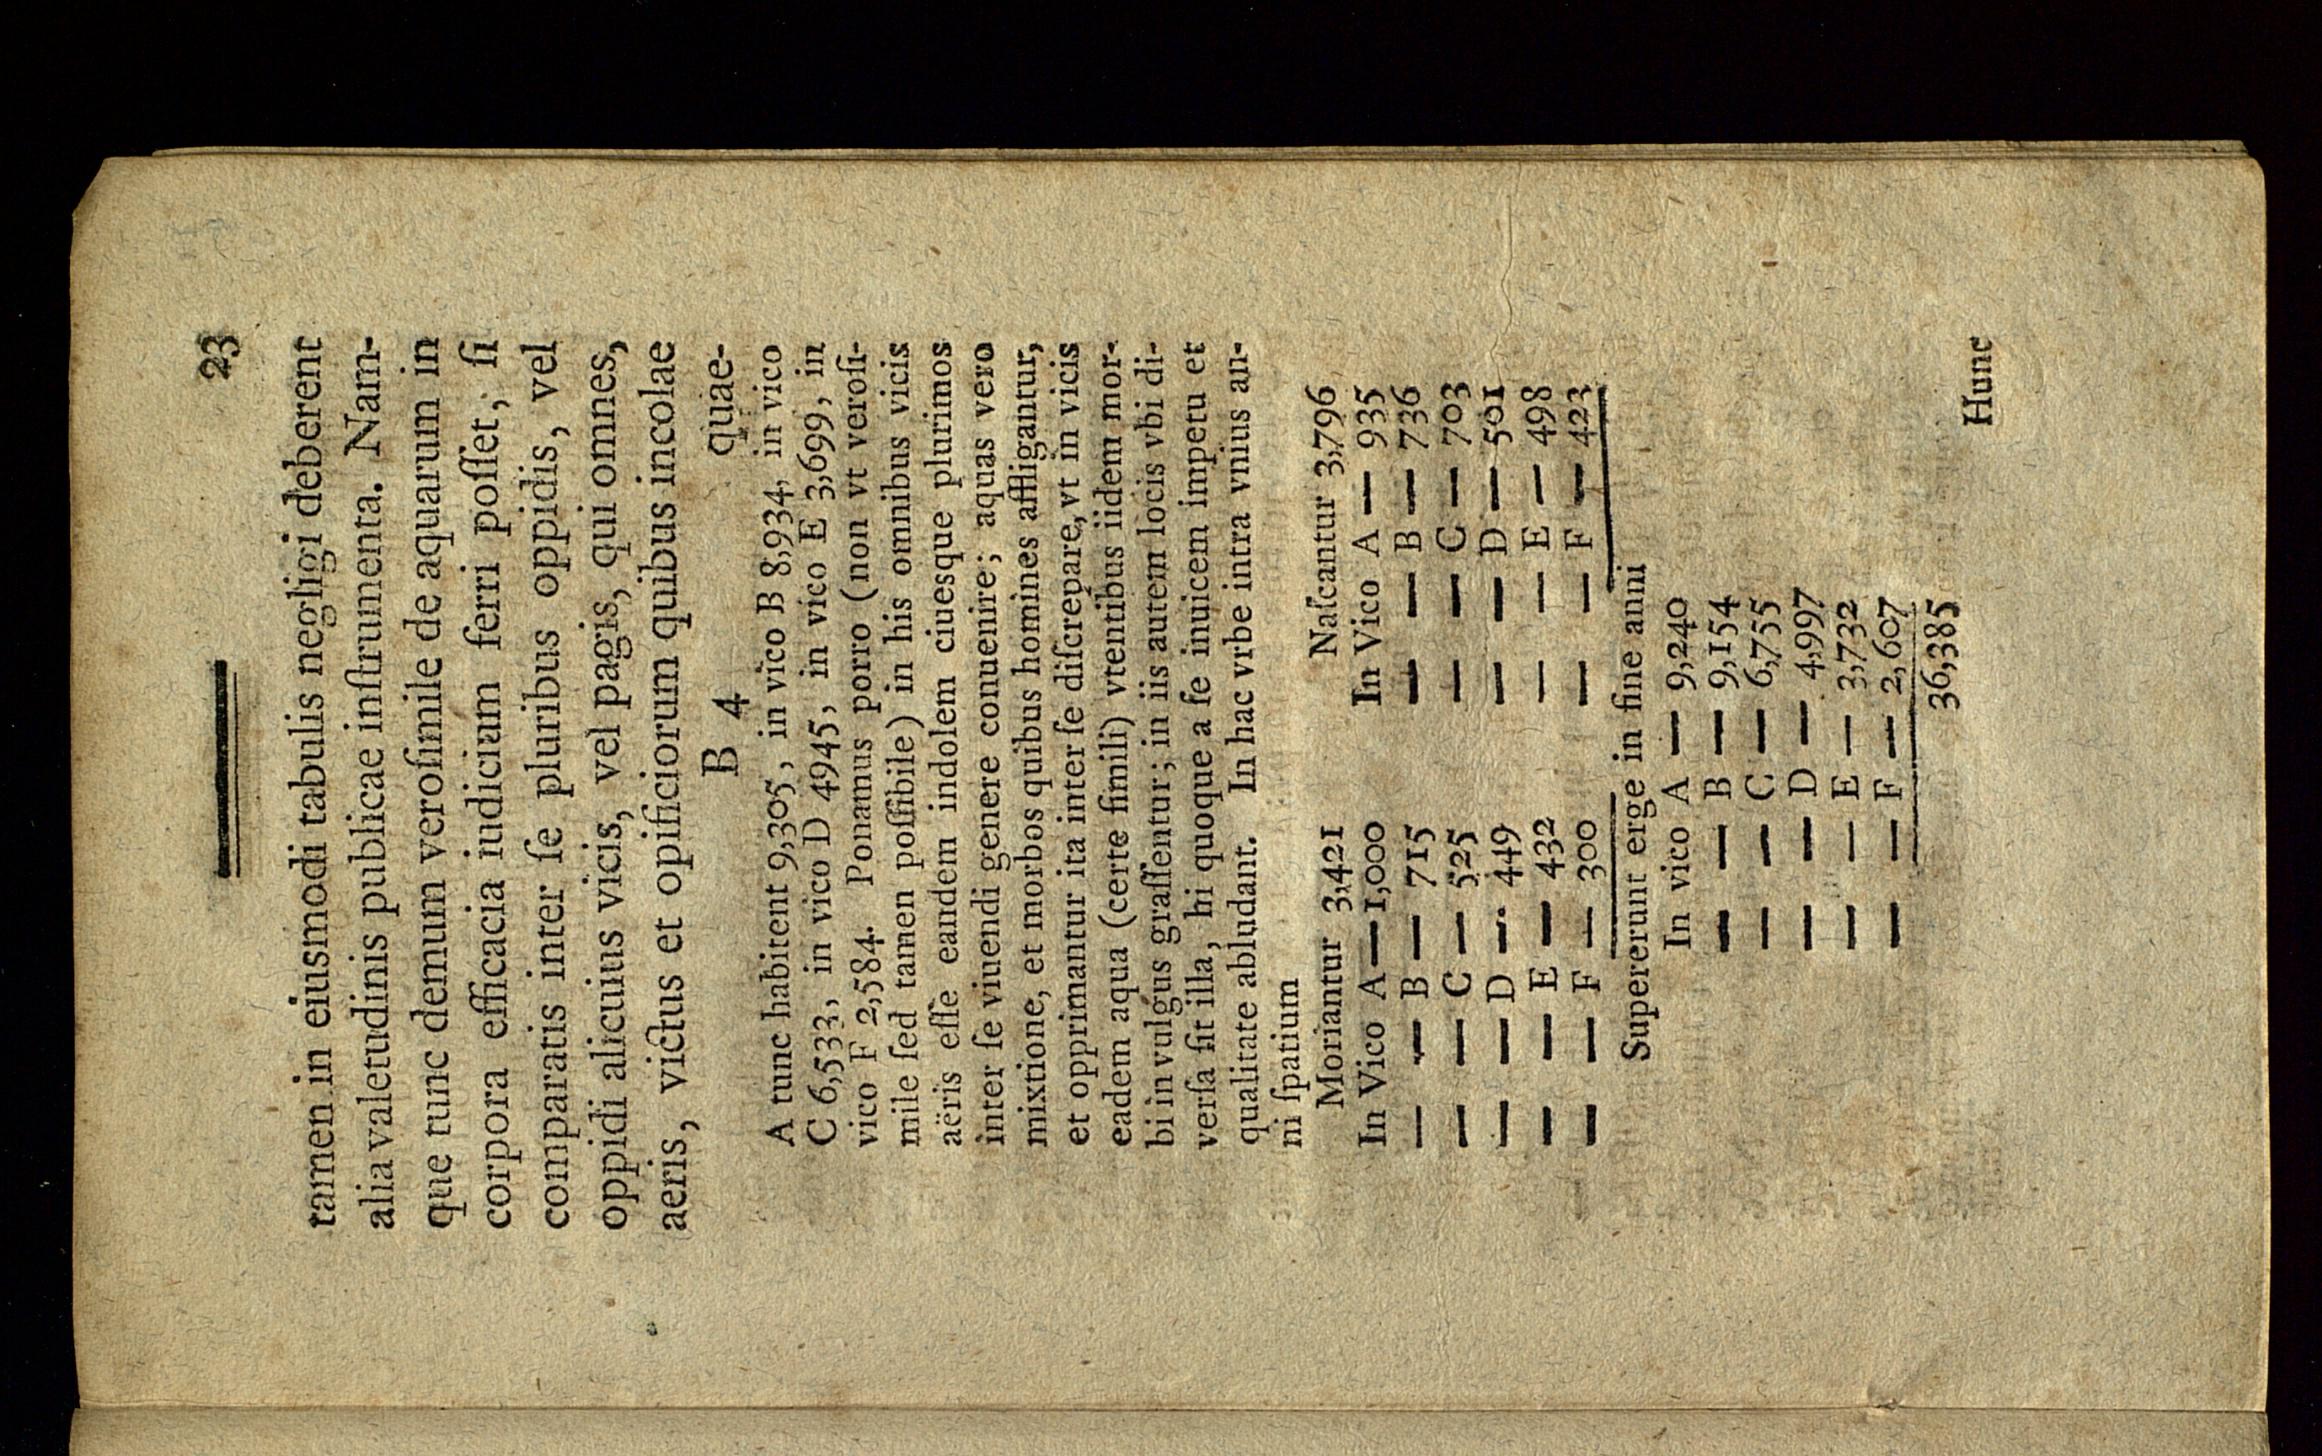 23
tamen in eiusmodi tabulis negligi deberent
alia valetudinis publicae inſtrumenta. Nam-
que tunc demum veroſimile de aquarum in
corpora efficacia iudicium ferri poſſet, ſi
comparatis inter ſe pluribus oppidis, vel
oppidi alicuius vicis, vel pagis, qui omnes,
aeris, victus et opificiorum quibus incolae
B 4 quae-
A tunc habitent 9,305, in vico B 8,934, in vico
C 6,533, in vico D 4945, in vico E 3,699, in
vico F 2,584. Ponamus porro (non vt veroſi-
mile ſed tamen poſſibile) in his omnibus vicis
aëris eſſe eandem indolem ciuesque plurimos
inter ſe viuendi genere conuenire; aquas vero
mixtione, et morbos quibus homines affligantur,
et opprimantur ita inter ſe diſcrepare, vt in vicis
eadem aqua (certe ſimili) vtentibus iidem mor-
bi in vulgus graſſentur; in iis autem locis vbi di-
verſa ſit illa, hi quoque a ſe inuicem impetu et
qualitate abludant. In hac vrbe intra vnius an-
ni ſpatium
Moriantur 3,421 Naſcantur 3,796
In Vico A — 1,000 In Vico A — 935
— — B — 715 — — B — 736
— — C — 525 — — C — 703
— — D — 449 — — D — 501
— — E — 432 — — E — 498
— — F — 300 — — F — 423
Supererunt erge in fine anni
In vico A — 9,240
— — B — 9,154
— — C — 6,755
— — D — 4,997
— — E — 3,732
— — F — 2,607
36,385
Hunc